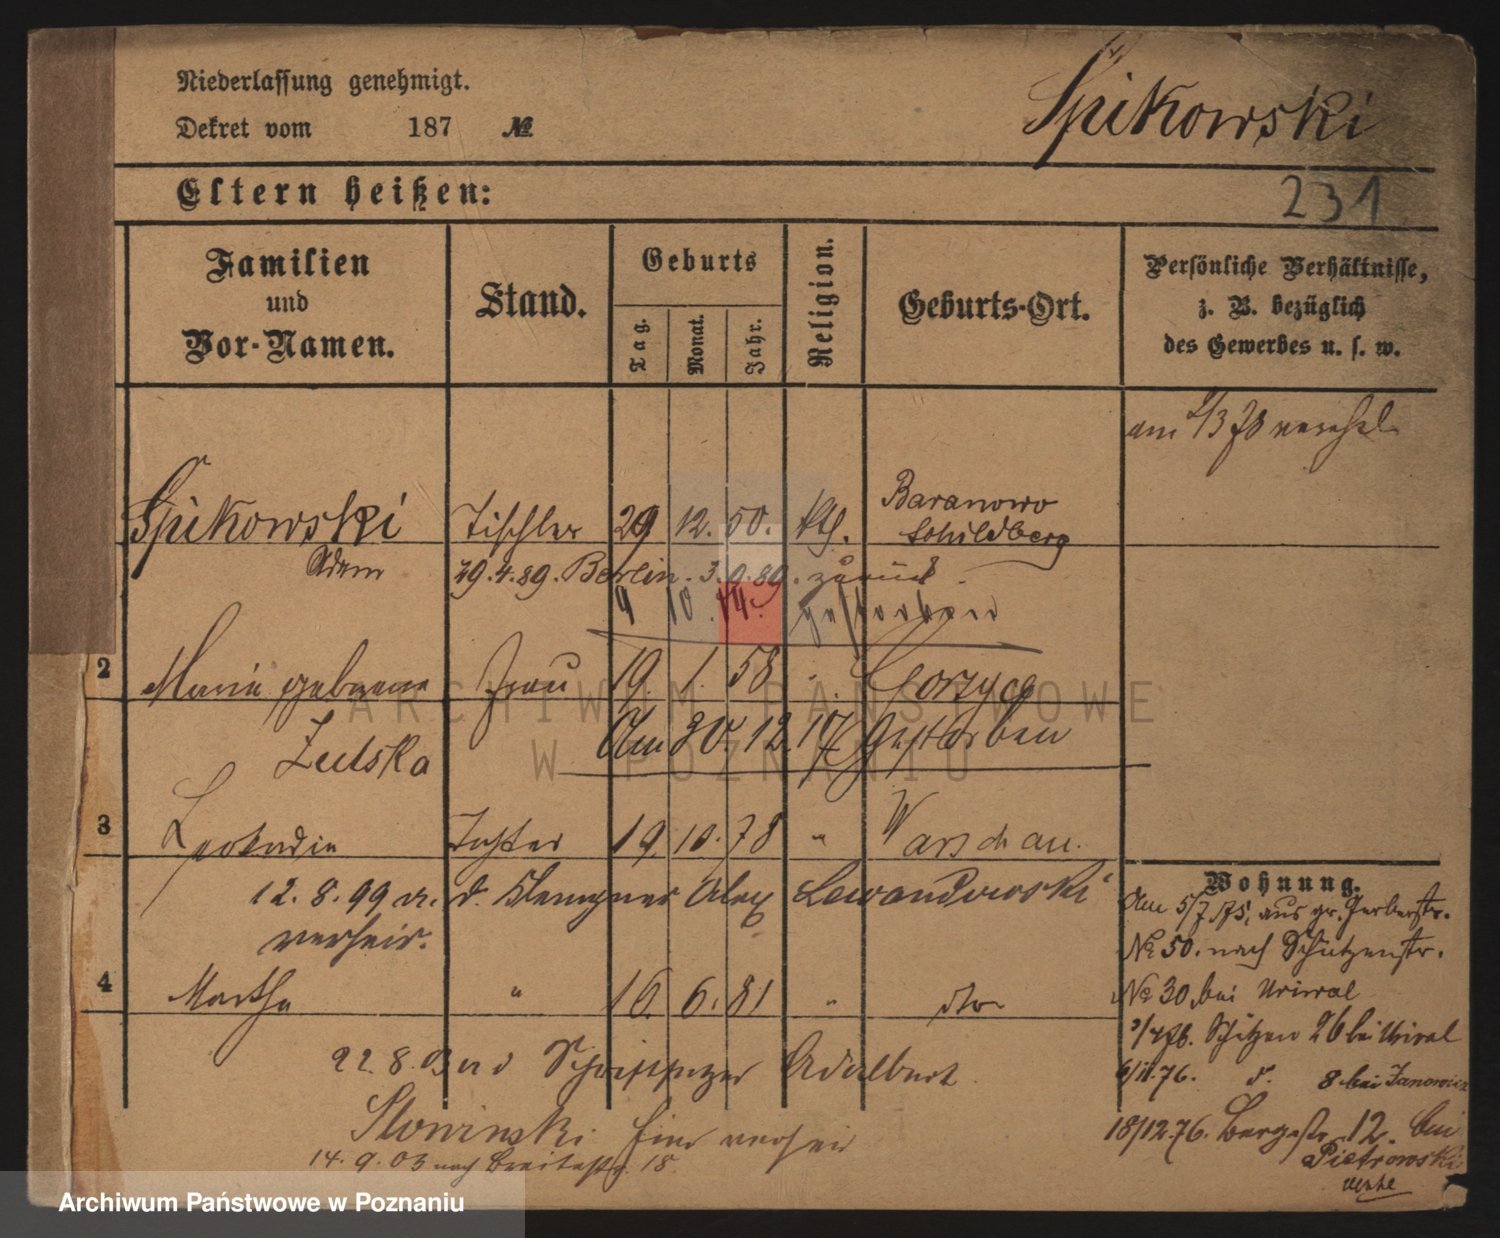 Niederlassung genehmigt.
Dekret vom 187 №
Spikowski
Eltern heißen:
231
Familien und Vor-Namen.
Stand.
Geburts
Tag.
Monat.
Jahr.
Religion.
Geburts-Ort.
Persönliche Verhältnisse,
z. B. bezüglich
des Gewerbes u. s. w.
am 1/3 78
Spikowski Tischler 29 12. 50. kth. Baranowo
Schildberg
Adam 29.4.89. Berlin. 3.9.89. zurück.
4 10. 14. gestorben
2 Marie geborene Frau 19. 1. 58 " Gorzyce
Zulska Am 30. 12. 17 gestorben
3 Leokadia Tochter 19. 10. 78 " Warschau.
12. 8. 99 m. d. Klempner Alex Lewandowski
verheir.
4 Martha " 16. 6. 81 " dto
22.8.03 m d Adalbert
Slowinski hier verheir
14. 9. 03 nach Breitestr. 18.
Wohnung.
Am 5/7.75, aus gr. Gerberstr.
№ 50. nach Schützenstr.
№ 30 bei Urival
3/4 76. Schützen 26 bei Urival
6/11.76. d. 8 bei Janowicz
18/12.76. Bergstr 12. bei
Pietrowski
ARCHIWUM PAŃSTWOWE
W POZNANIU
Archiwum Państwowe w Poznaniu